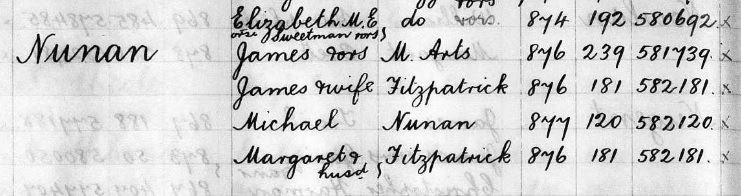 Elizabeth M. E do rors. 874 192 580692 x
orse Sweetman rors
Nunan James rors M. Arts 876 239 581739. x
James & wife Fitzpatrick 876 181 582181. x
Michael Nunan 877 120 582120. x
Margaret & Fitzpatrick 876 181 582181. x
husd